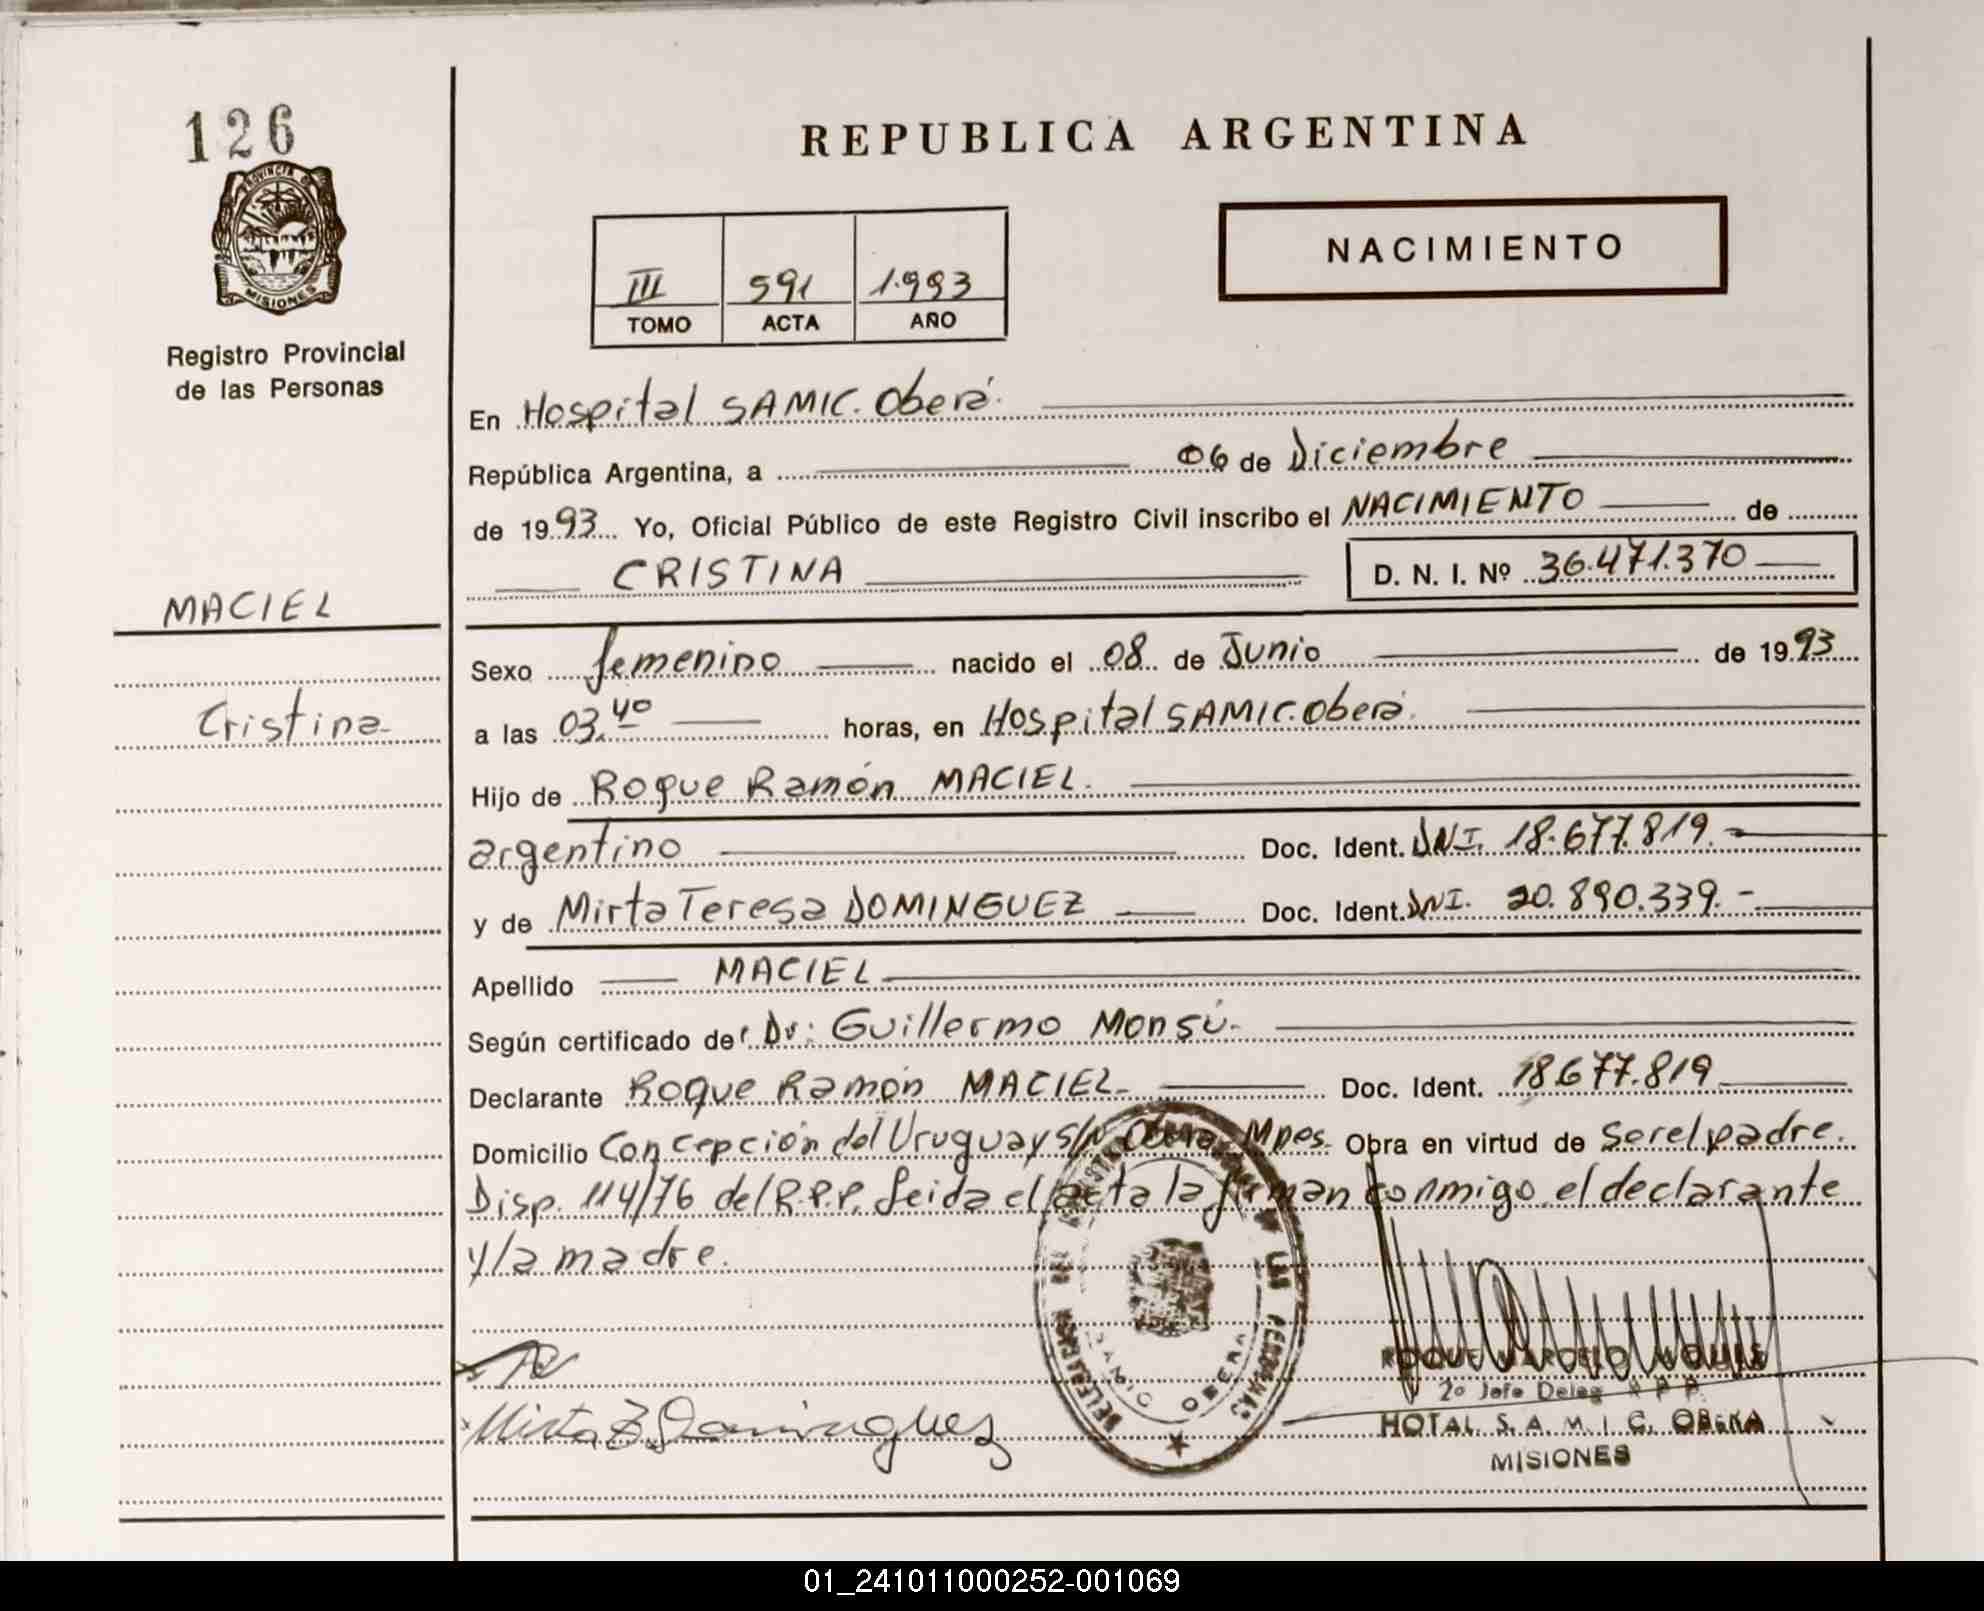 126
REPUBLICA ARGENTINA
PROVINCIA DE
MISIONES
Registro Provincial
de las Personas
NACIMIENTO
III 591 1.993
TOMO ACTA AÑO
En Hospital SAMIC. Oberá.
República Argentina, a 06 de Diciembre
de 1993 Yo, Oficial Público de este Registro Civil inscribo el NACIMIENTO de
CRISTINA D. N. I. Nº 36.471.370
MACIEL
Cristina
Sexo femenino nacido el 08 de Junio de 1993
a las 03.40 horas, en Hospital SAMIC. Oberá.
Hijo de Roque Ramón MACIEL.
argentino Doc. Ident. DNI. 18.677.819.-
y de Mirta Teresa DOMINGUEZ Doc. Ident. DNI. 20.890.339.-
Apellido MACIEL
Según certificado de Dr: Guillermo Monsú.
Declarante Roque Ramón MACIEL Doc. Ident. 18.677.819
Domicilio Concepción del Uruguay s/n Oberá Mnes. Obra en virtud de ser el padre.
Disp. 114/76 del R.P.P. Leida el acta la firman conmigo el declarante
y la madre.
Mirta T. Dominguez
DELEGACION DEL REGISTRO DE LAS PERSONAS
OBERA
ROQUE MARCELO
2º Jefe Deleg R P P
HOTAL. S. A. M. I. C. OBERA
MISIONES
01_241011000252-001069